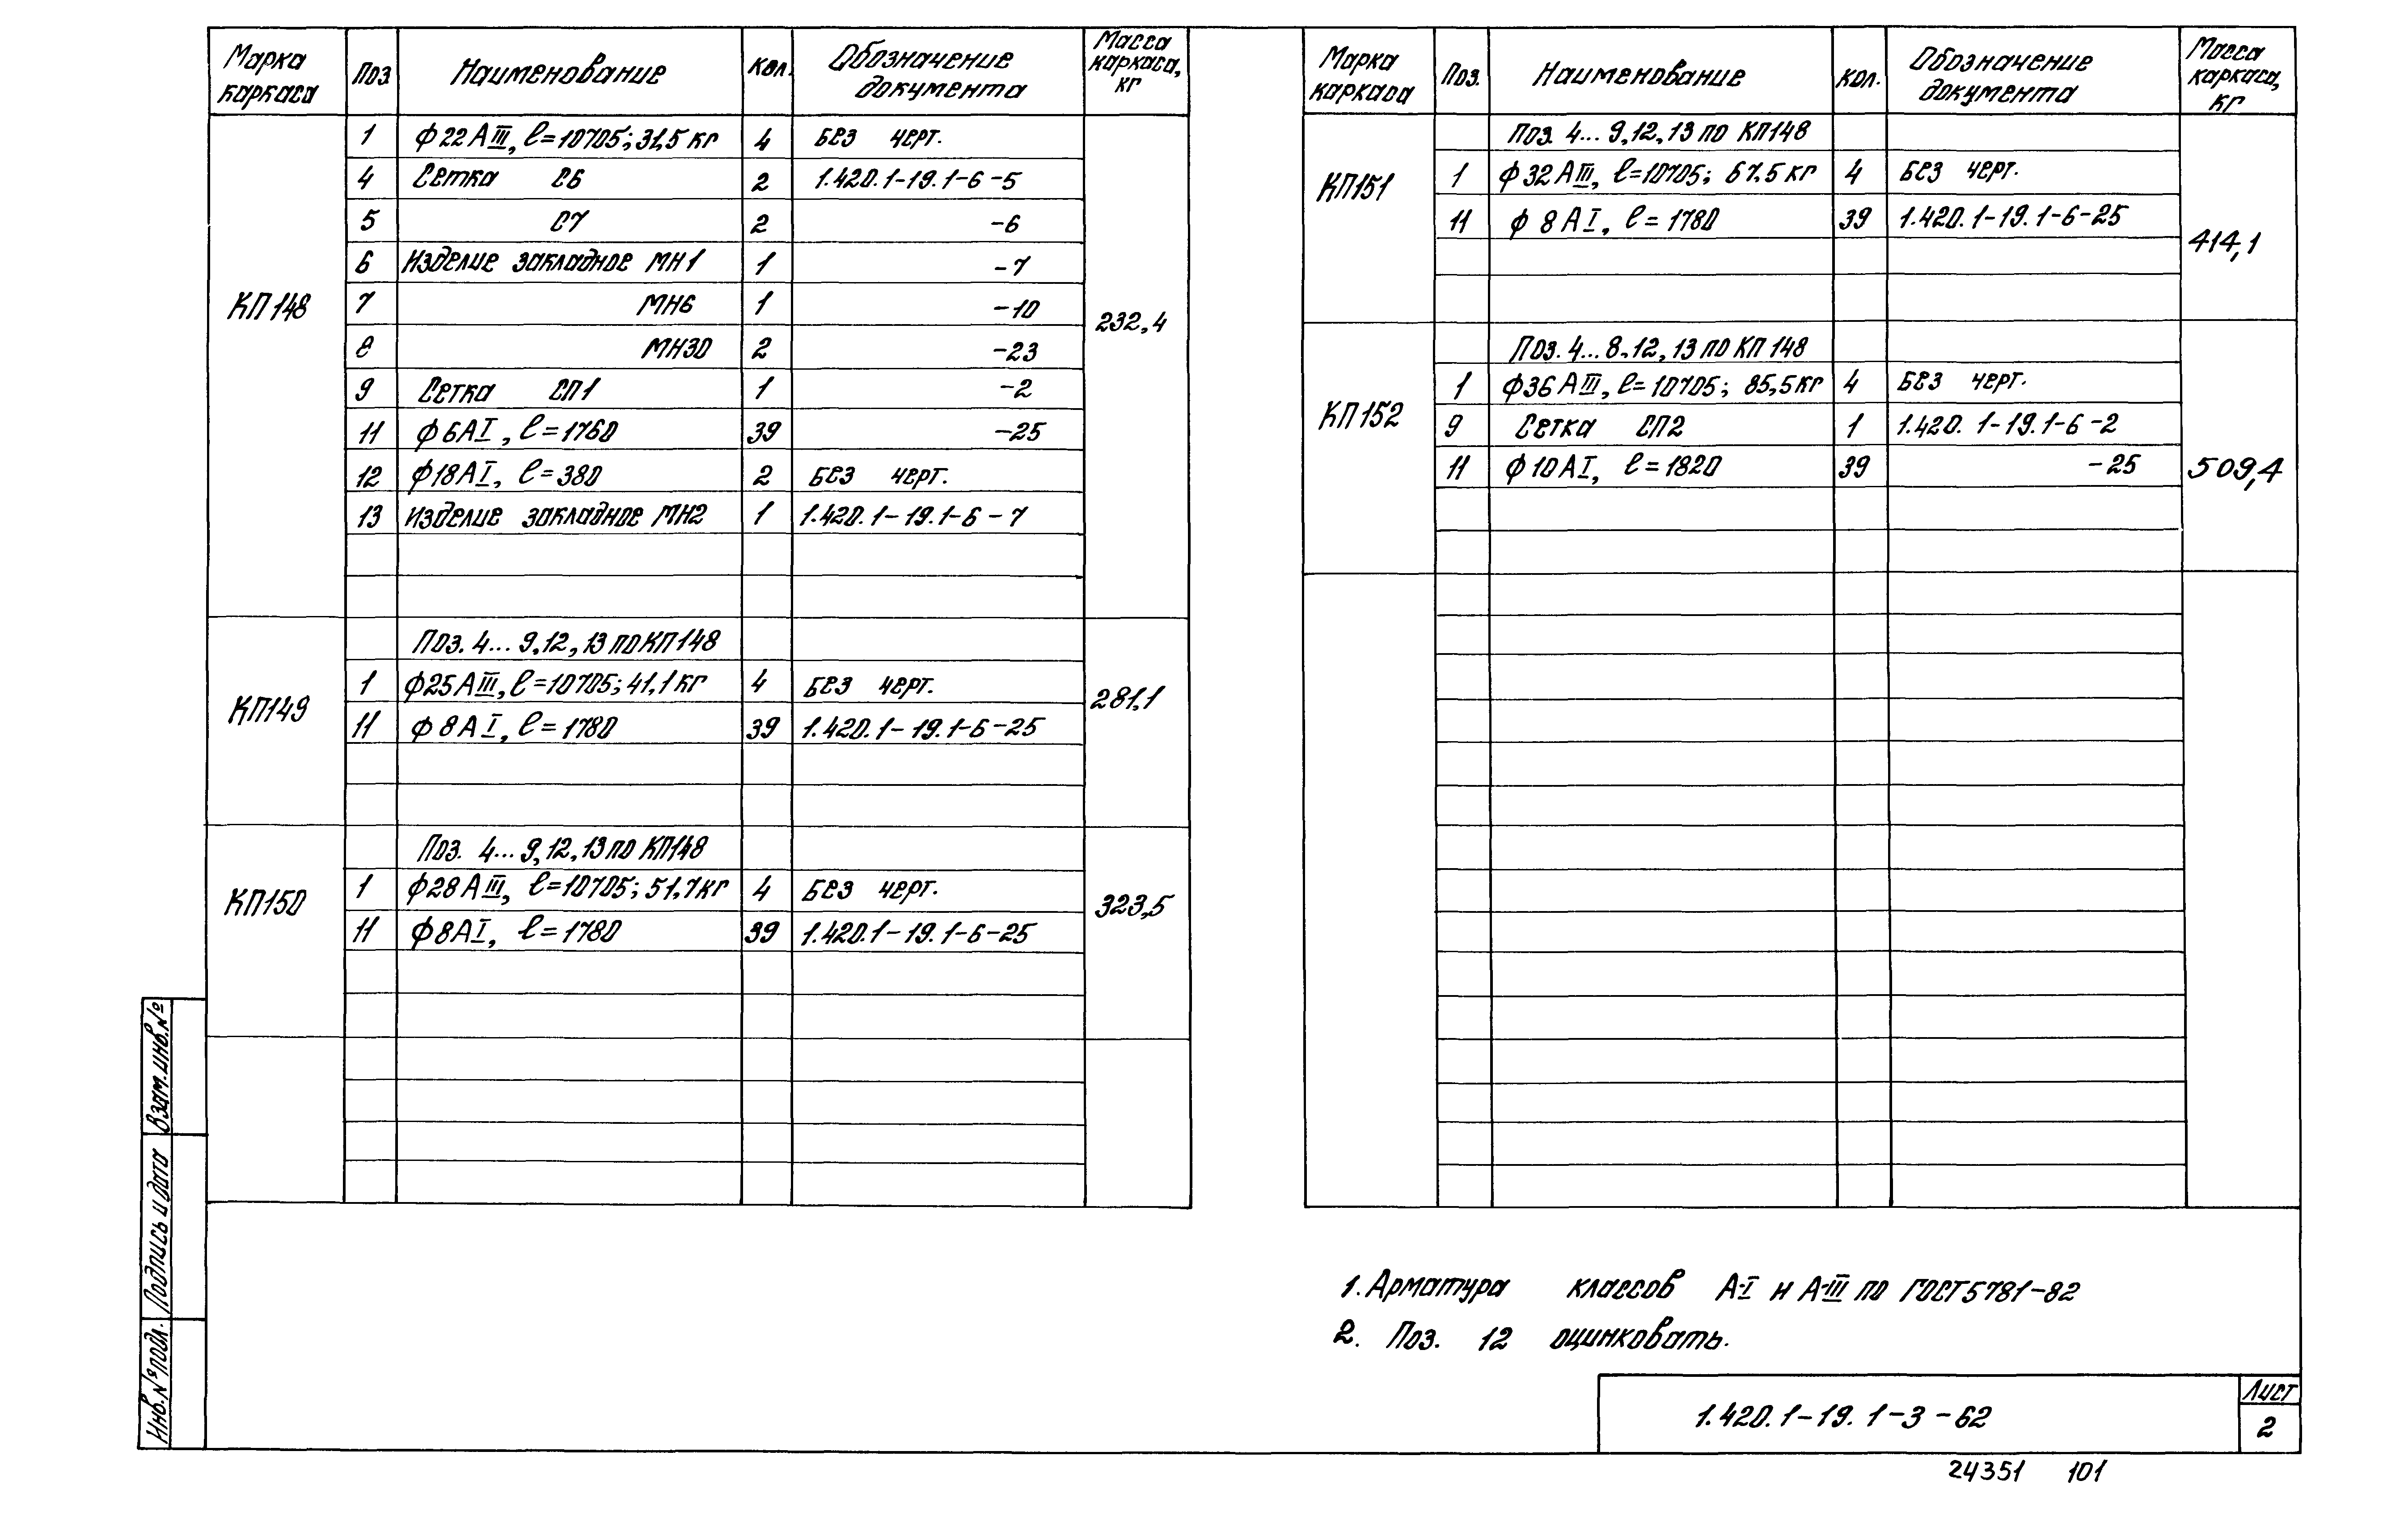 Марка каркаса Поз Наименование Кол. Обозначение документа Масса каркаса, кг
КП148 232,4
1 ф22АIII, ℓ=10705; 31,5 кг 4 Без черт.
4 Сетка С6 2 1.420.1-19.1-6-5
5 С7 2 -6
6 Изделие закладное МН1 1 -7
7 МН6 1 -10
8 МН30 2 -23
9 Сетка СП1 1 -2
11 ф6АI, ℓ=1760 39 -25
12 ф18АI, ℓ=380 2 Без черт.
13 Изделие закладное МН2 1 1.420.1-19.1-6-7
КП149 281,1
Поз. 4... 9,12,13 по КП148
1 ф25АIII, ℓ=10705; 41,1 кг 4 Без черт.
11 ф8АI, ℓ=1780 39 1.420.1-19.1-6-25
КП150 323,5
Поз. 4... 9,12,13 по КП148
1 ф28АIII, ℓ=10705; 51,7 кг 4 Без черт.
11 ф8АI, ℓ=1780 39 1.420.1-19.1-6-25
Марка каркаса Поз. Наименование Кол. Обозначение документа Масса каркаса, кг
КП151 414,1
Поз. 4... 9,12,13 по КП148
1 ф32АIII, ℓ=10705; 67.5 кг 4 Без черт.
11 ф 8АI, ℓ=1780 39 1.420.1-19.1-6-25
КП152 509,4
Поз. 4... 8,12,13 по КП148
1 ф36АIII, ℓ=10705; 85,5 кг 4 Без черт.
9 Сетка СП2 1 1.420.1-19.1-6-2
11 ф10АI, ℓ=1820 39 -25
1. Арматура классов А-I и А-III по ГОСТ 5781-82
2. Поз. 12 оцинковать.
1.420.1-19.1-3-62
Лист
2
24351 101
Взам.инв.№
Подпись и дата
Инв.№подл.